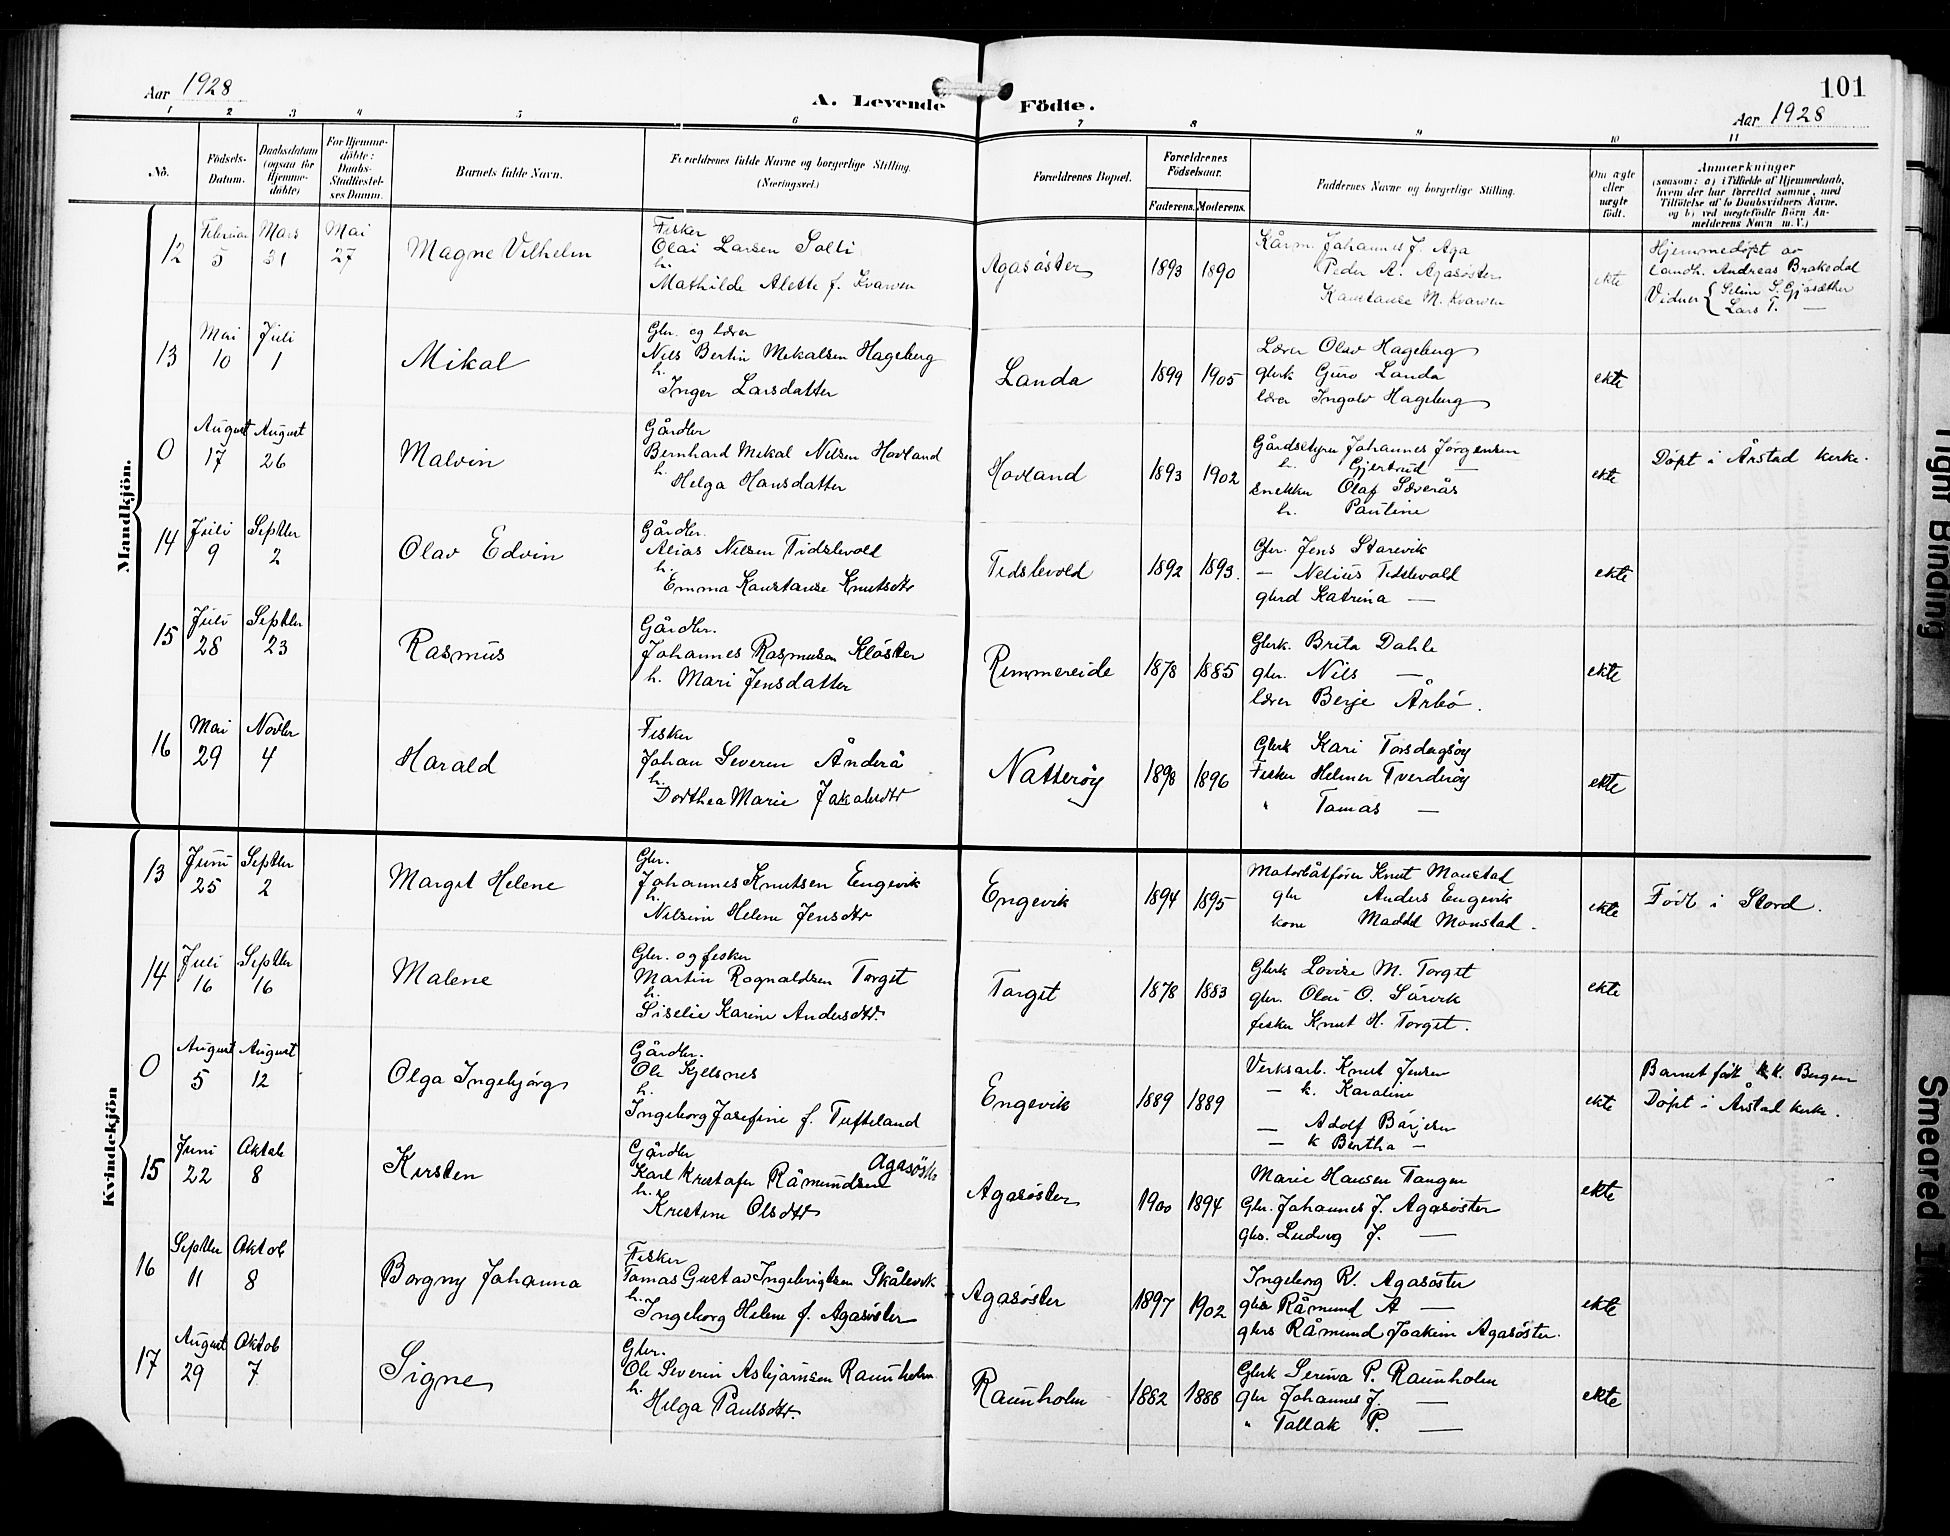 Aar 1928
A. Levende Födte.
101
Aar 1928
1 2 3 4 5 6 7 8 9 10 11
No.
Födsels-
Datum.
Daabsdatum
(ogsaa för
Hjemme-
döbte)
For Hjemme-
döbte:
Daabs-
Stadfæstel-
ses Datum.
Barnets fulde Navn.
Forældrenes fulde Navne og borgerlige Stilling.
(Næringsvei.)
Forældrenes Bopæl.
Forældrenes
Födselsaar.
Faderens. Moderens.
Faddernes Navne og borgerlige Stilling.
Om ægte
eller
uægte
födt.
Anmærkninger
(saasom: a) i Tilfælde af Hjemmedaab,
hvem der har forrettet samme, med
Tilföielse af to Daabsvidners Navne,
og b) ved uægtefödte Börn An-
melderens Navn m. V.)
Mandkjön.
12
Februar
5
Mars
31
Mai
27
Magne Vilhelm
Fisker
Olai Larsen Solli
h.
Mathilde Alette f. Kvarven
Agasøster
1893 1890
Kårm. Johannes J. Aga
Peder A. Agasøster
Konstanse M. Kvarven
ekte
Hjemmedøpt av
Landh. Andreas Brakedal
Vidner { Selim S. Gjøsæther
Lars T. —
13
Mai
10
Juli
1
Mikal
Gbr. og lærer
Nils Bertin Mikalsen Hageberg
h.
Inger Larsdatter
Landa
1899 1905
Lærer Olav Hageberg
gbrk Guro Landa
lærer Ingolv Hageberg
ekte
0
August
17
August
26
Malvin
Gårdbr
Bernhard Mikal Nilsen Hovland
h.
Helga Hansdatter
Hovland
1893 1902
Gårdstyrer Johannes Jørgensen
h. Gjertrud —
snekker Olaf Sæverås
h. Pauline
ekte
Døpt i Årstad kirke.
14
Juli
9
Septbr
2
Olav Edvin
Gårdbr.
Alias Nilsen Tidslevold
h.
Emma Konstanse Knutsdtr
Tidslevold
1892 1893.
Gbr. Jens Starevik
— Nelius Tidslevold
gbrd Katrina —
ekte
15
Juli
28
Septbr
23
Rasmus
Gårdbr.
Johannes Rasmusen Kløster
h. Mari Jensdatter
Rimmereide
1878 1885
Gbrk. Brita Dahle
gbr. Nils —
lærer Berje Årbø.
ekte
16
Mai
29
Novbr
4
Harald
Fisker
Johan Severin Ånderå
h.
Dorthea Marie Jakobsdtr
Natterøy
1898 1896
Gbrk Kari Torsdagsøy
Fisker Helmer Tverderøy
" Tomas —
ekte
Kvindekjön
13
Juni
25
Septbr
2
Margit Helene
Gbr.
Johannes Knutsen Engevik
h.
Nilsine Helene Jensdtr
Engevik
1894 1895
Motorbåtfører Knut Monstad
gbr Anders Engevik
kone Maddel Monstad.
ekte
Født i Stord.
14
Juli
16
Septbr
16
Malene
Gbr. og fisker
Martin Rognaldsen Torget
h.
Siselie Karine Andersdtr.
Torget
1878 1883
Gbrk Lovise M. Torget
gbr. Olai O. Sørvik
fisker Knut H. Torget.
ekte
0
August
5
August
12
Olga Ingebjørg
Gårdbr.
Ole Kjelsnes
h.
Ingeborg Josefine f. Tufteland
Engevik
1889 1889
Verksarb. Knut Jensen
— k. Karoline
— Adolf Børjesen
— k Bertha —
ekte
Barnet født k.k. Bergen
Døpt i Årstad kirke.
15
Juni
22
Oktob
8
Kirsten
Gårdbr
Karl Kristofer Råmundsen Agasøster
h.
Kristine Olsdtr
Agasøster
1900 1894
Marie Hansen Tangen
Gbr. Johannes J. Agasøster
gbs. Ludvig J. —
ekte
16
Septbr
11
Oktob
8
Borgny Johanna
Fisker
Tomas Gustav Ingebrigtsen Skålevik
h.
Ingeborg Helene f. Agasøster
Agasøster
1897 1902
Ingeborg R. Agasøster
gbr Råmund A —
gbrs Råmund Joakim Agasøster.
ekte
17
August
29
Oktob
7
Signe
Gbr.
Ole Severin Asbjørnsen Raunholm
h.
Helga Paulsdtr.
Raunholm
1882 1888
Gbrk Serina P. Raunholm
gbr Johannes J. —
" Tallak P. —
ekte
Tight Binding
Smeared